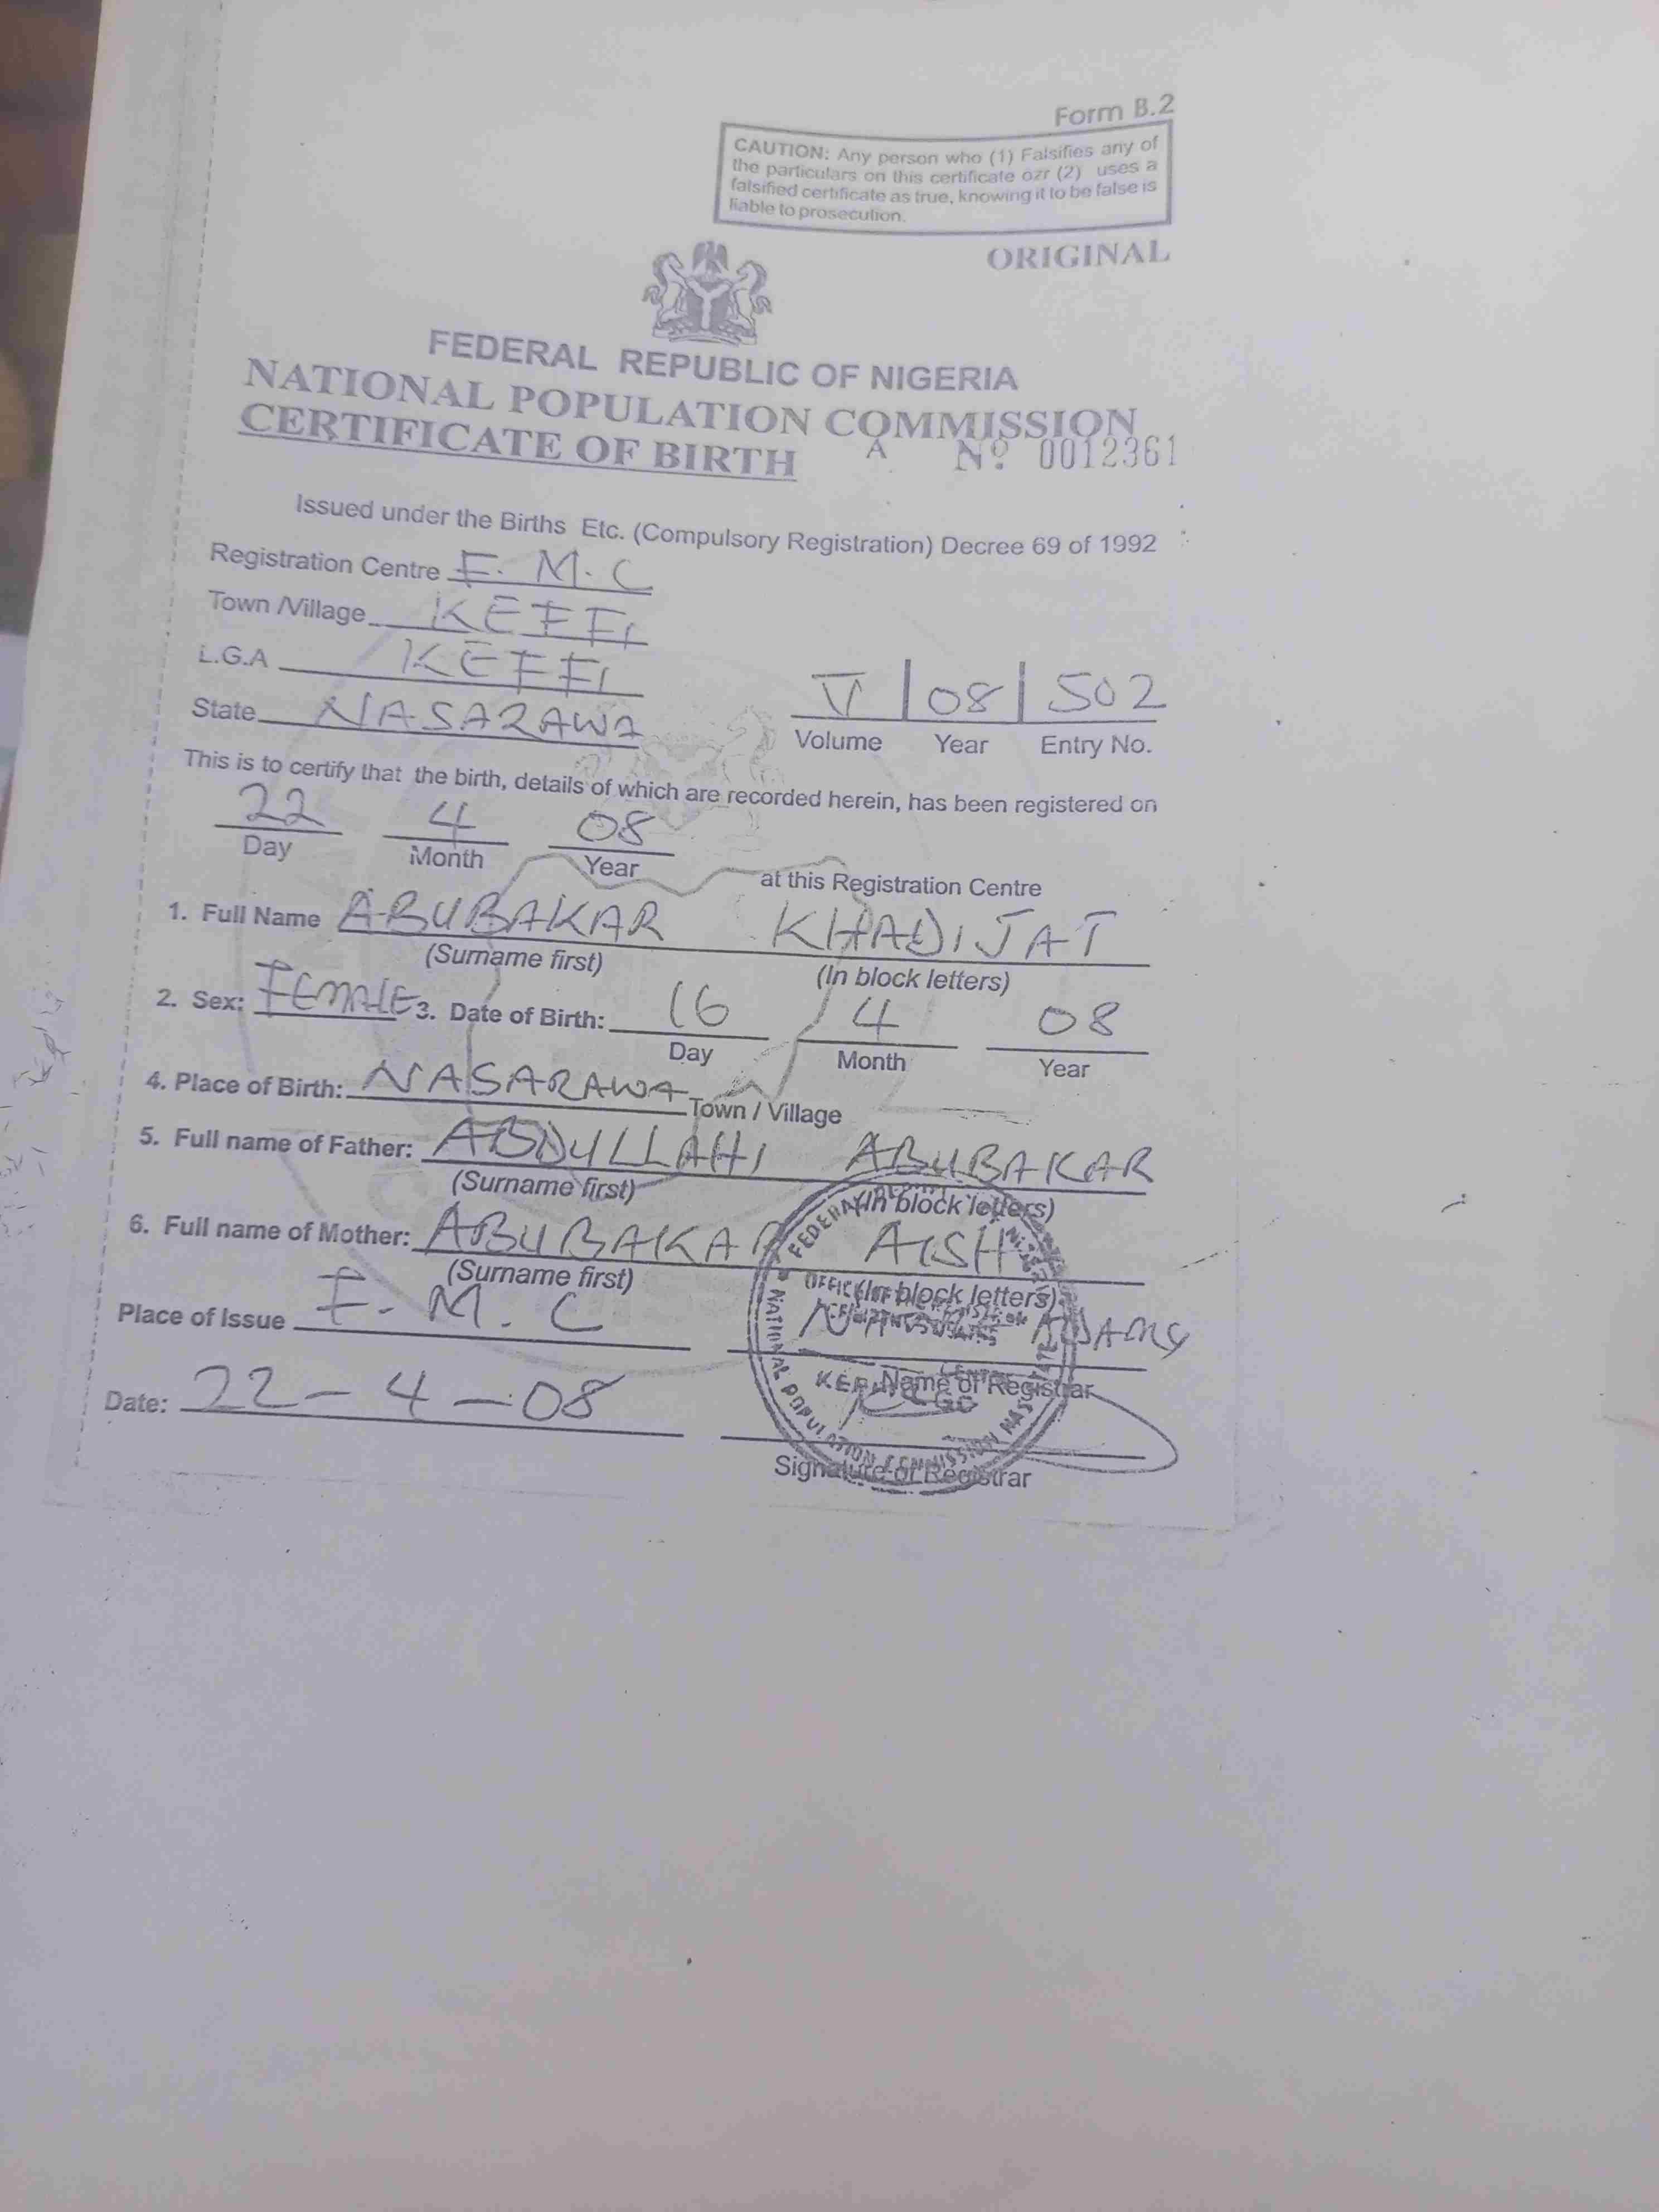 Form B.2
CAUTION: Any person who (1) Falsifies any of
the particulars on this certificate ozr (2) uses a
falsified certificate as true, knowing it to be false is
liable to prosecution.
ORIGINAL
FEDERAL REPUBLIC OF NIGERIA
NATIONAL POPULATION COMMISSION
CERTIFICATE OF BIRTH A Nº 0012361
Issued under the Births Etc. (Compulsory Registration) Decree 69 of 1992
Registration Centre F. M. C
Town /Village KEFFI
L.G.A KEFFI
State NASARAWA
V 08 502
Volume Year Entry No.
This is to certify that the birth, details of which are recorded herein, has been registered on
22 4 08
Day Month Year at this Registration Centre
1. Full Name ABUBAKAR KHADIJAT
(Surname first) (In block letters)
2. Sex: FEMALE 3. Date of Birth: 16 4 08
Day Month Year
4. Place of Birth: NASARAWA Town / Village
5. Full name of Father: ABDULLAHI ABUBAKAR
(Surname first) (In block letters)
6. Full name of Mother: ABUBAKAR AISH
(Surname first) (In block letters)
Place of Issue F. M. C ADAMS
Name of Registrar
Date: 22-4-08
Signature of Registrar
NATIONAL POPULATION COMMISSION